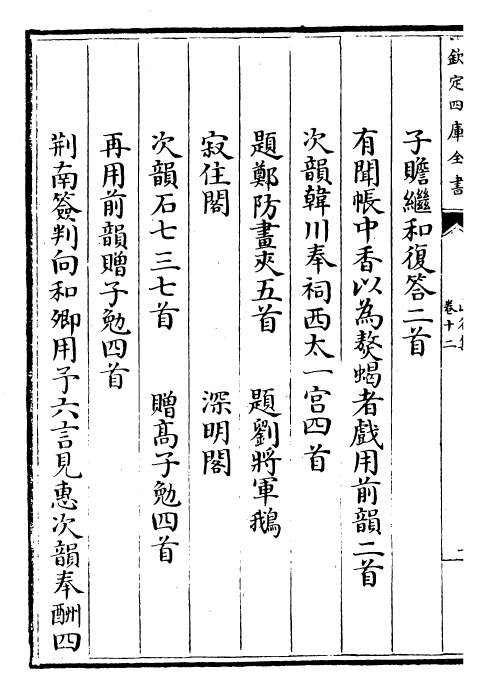 欽定四庫全書
卷十二
子瞻繼和復答二首
有聞帳中香以為熬蝎者戲用前韻二首
次韻韓川奉祠西太一宫四首
題鄭防畫夾五首 題劉將軍鵝
寂住閣 深明閣
次韻石七三七首 贈髙子勉四首
再用前韻贈子勉四首
荆南簽判向和卿用予六言見惠次韻奉酬四